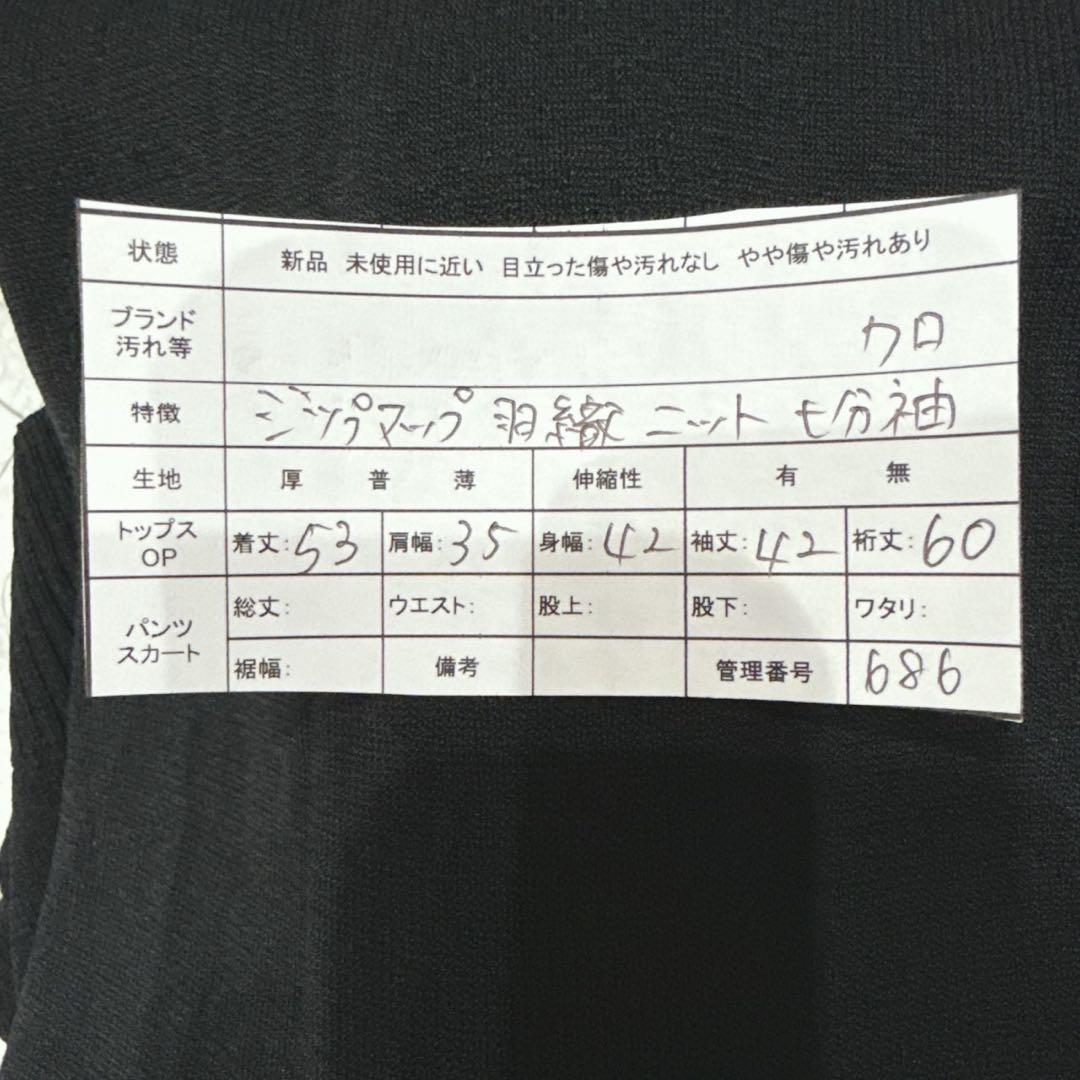 状態 新品 未使用に近い 目立った傷や汚れなし やや傷や汚れあり
ブランド
汚れ等 クロ
特徴 ジップマップ 羽織 ニット 七分袖
生地 厚 普 薄 伸縮性 有 無
トップス
OP 着丈:53 肩幅:35 身幅:42 袖丈:42 裄丈:60
パンツ
スカート 総丈: ウエスト: 股上: 股下: ワタリ:
裾幅: 備考 管理番号 686